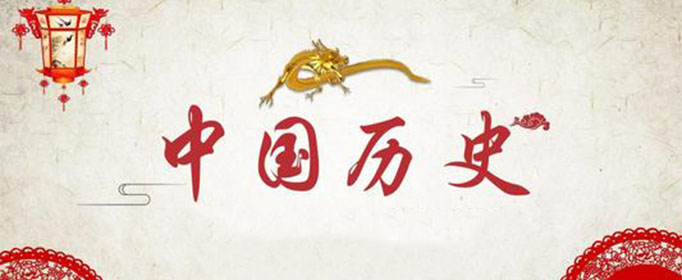 中国历史